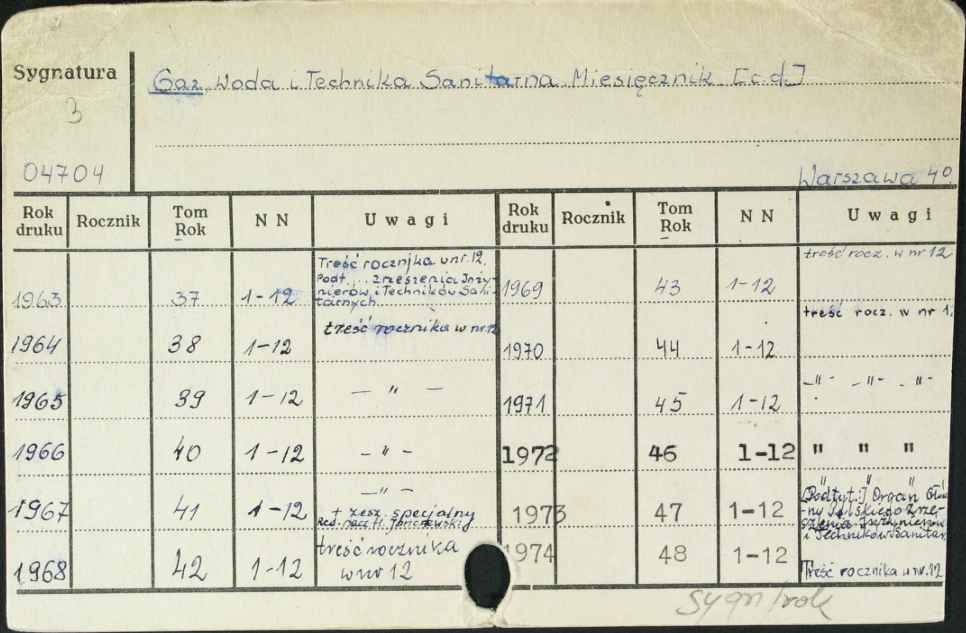 Sygnatura
Gaz Woda i Technika Sanitarna. Miesięcznik. [c.d.]
3
04704
Warszawa 4°
Rok druku Rocznik Tom Rok N N Uwagi Rok druku Rocznik Tom Rok N N Uwagi
Treść rocznika w nr. 12.
Podt. ... zrzeszenia Inży-
nierów i Techników Sani-
tarnych
1963 37 1-12
treść rocz. w nr 12
1969 43 1-12
treść rocznika w nr 12
1964 38 1-12
treść rocz. w nr 1
1970 44 1-12
1965 39 1-12 — " —
1971 45 1-12 -"- -"- -"-
1966 40 1-12 - " -
1972 46 1-12 " " "
— " —
1967 41 1-12 + zesz. specjalny
Red. nacz. H. Janczewski
" " "
1973 47 1-12
[Podtyt.:] Organ Głów-
ny Polskiego Zrze-
szenia Inżynierów
i Techników Sanitar.
1968 42 1-12 treść rocznika
w nr 12
1974 48 1-12 Treść rocznika w nr. 12
Sygn/rok